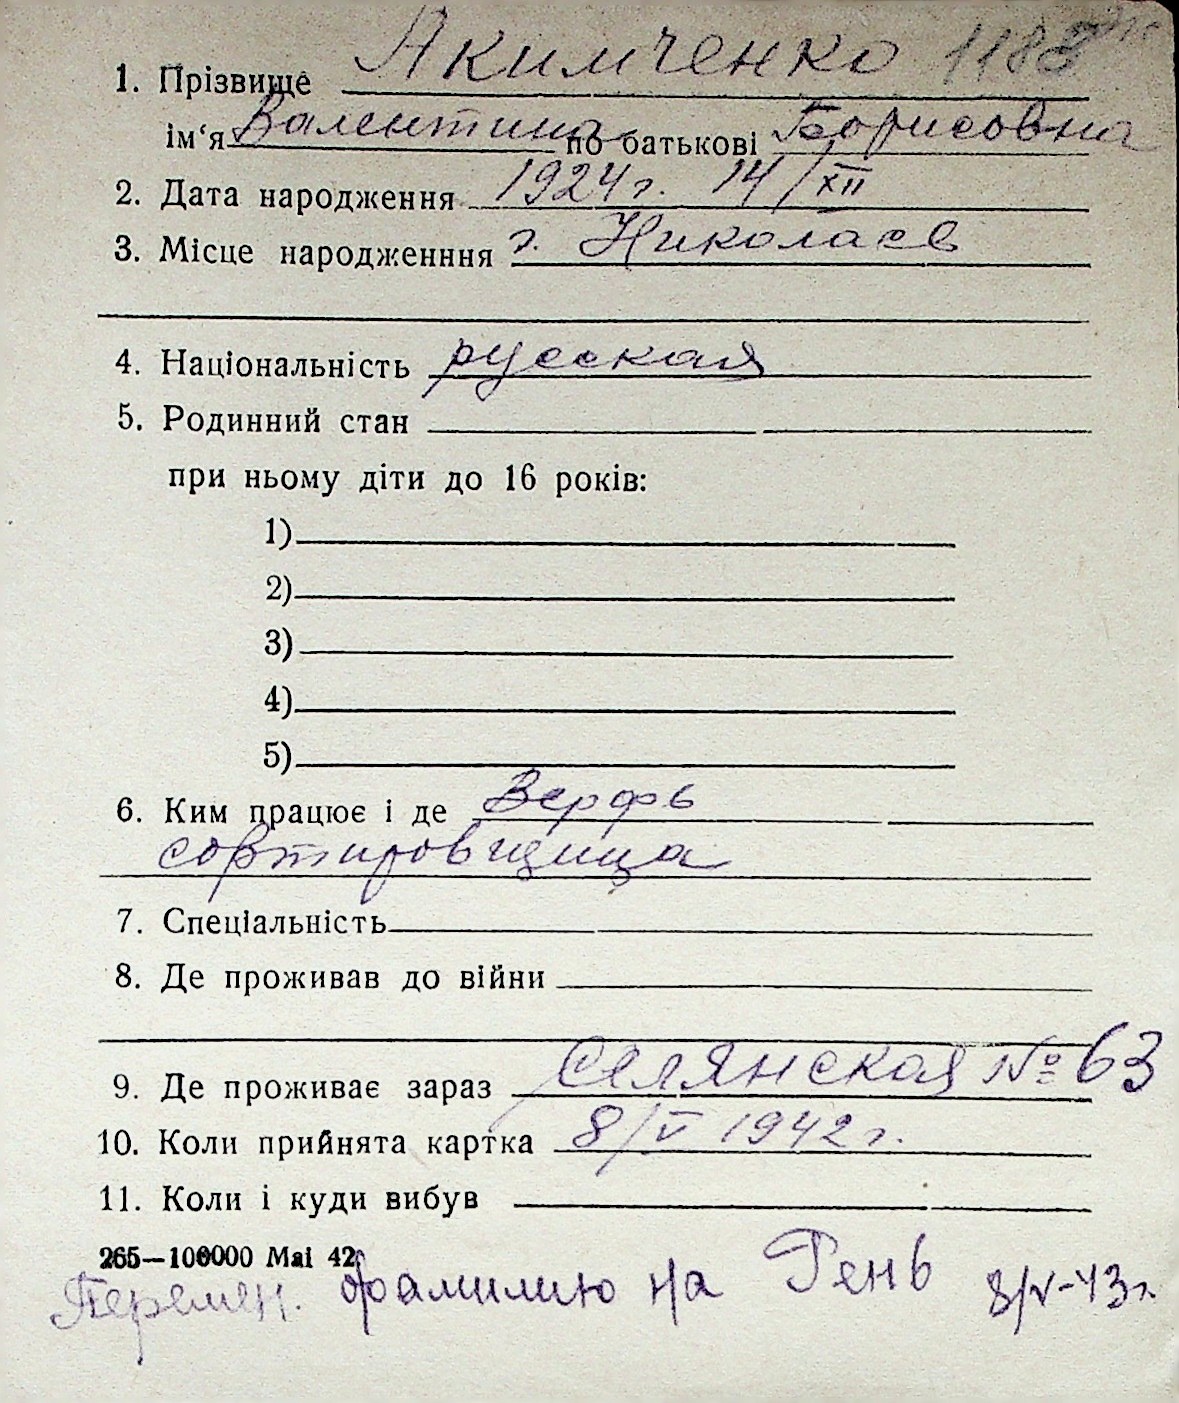 1. Прізвище Якимченко 1188
ім‘я Валентина по батькові Борисовна
2. Дата народження 1924 г. 14/XII
3. Місце народженння г. Николаев
4. Національність русская
5. Родинний стан
при ньому діти до 16 років:
1)
2)
3)
4)
5)
6. Ким працює і де Верфь
сортировщица
7. Спеціальність
8. Де проживав до війни
9. Де проживає зараз Селянская № 63
10. Коли прийнята картка 8/V 1942 г.
11. Коли і куди вибув
265—100000 Mai 42
Перемен. фамилию на Гень 8/V-43 г.